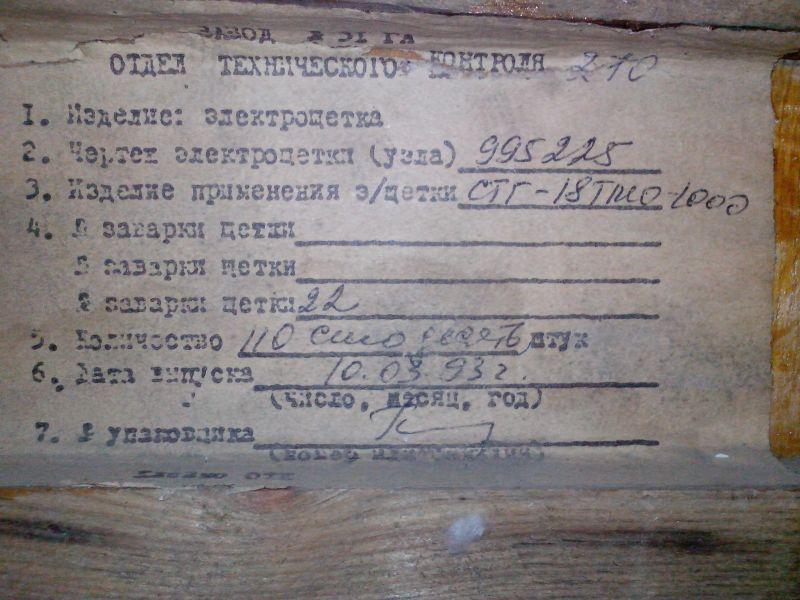 ЗАВОД
ОТДЕЛ ТЕХНИЧЕСКОГО КОНТРОЛЯ 270
1. Изделие: электрощетка
2. Чертеж электрощетки (узла) 995225
3. Изделие применения э/щетки СТГ-18ТМО-1000
4. № заварки щетки
№ заварки щетки
№ заварки щетки 22
5. Количество 110 сто десять штук
6. Дата выпуска 10.03.93 г.
(число, месяц, год)
7. № упаковщика
(номер
ОТК